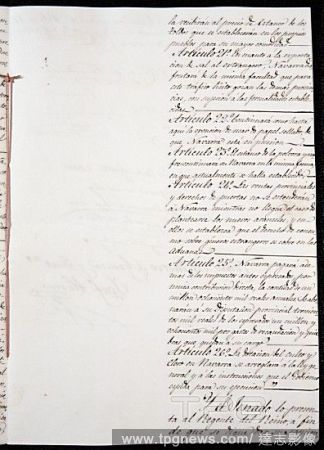 la recibirán al precio de Estanco de los
folios que se establecerán en los propios
pueblos para su mayor comodidad.
Artículo 21º En cuanto a la exporta
cion de sal al extrangero, Navarra dis
frutará de la misma facultad que para
este trafico licito gozan las demas provin
cias, con sujecion a las formalidades estable
cidas.
Artículo 22º Continuará como hasta
aqui la esencion de usar de papel sellado de
que Navarra está en posesion.
Artículo 23º El estanco de la polvora y azu
fre continuará en Navarra en la misma forma
en que actualmente se halla establecido.
Artículo 24º Las rentas provinciales
y derechos de puertas no se extenderán
a Navarra mientras no llegue el caso de
plantearse los nuevos aranceles, y en
ellos se establezca que el derecho de consu
mo sobre generos extrangeros se cobre en las
Aduanas.
Artículo 25º Navarra pagará ade
mas de los impuestos antes expresados por
unica contribucion directa, la cantidad de un
millon ochocientos mil reales anuales. Se abo
narán a su Diputacion provincial trescien
tos mil reales de los expresados un millon y
ochocientos mil por gastos de recaudacion y quie
bras que quedan a su cargo.
Artículo 26º La dotacion del culto y
Clero en Navarra se arreglará a la ley ge
neral y a las instrucciones que el Gobierno
expida para su ejecucion.
Y el Senado lo presen
ta al Regente del Reino a fin
de que se
www.tpgnews.com/ 達志影像